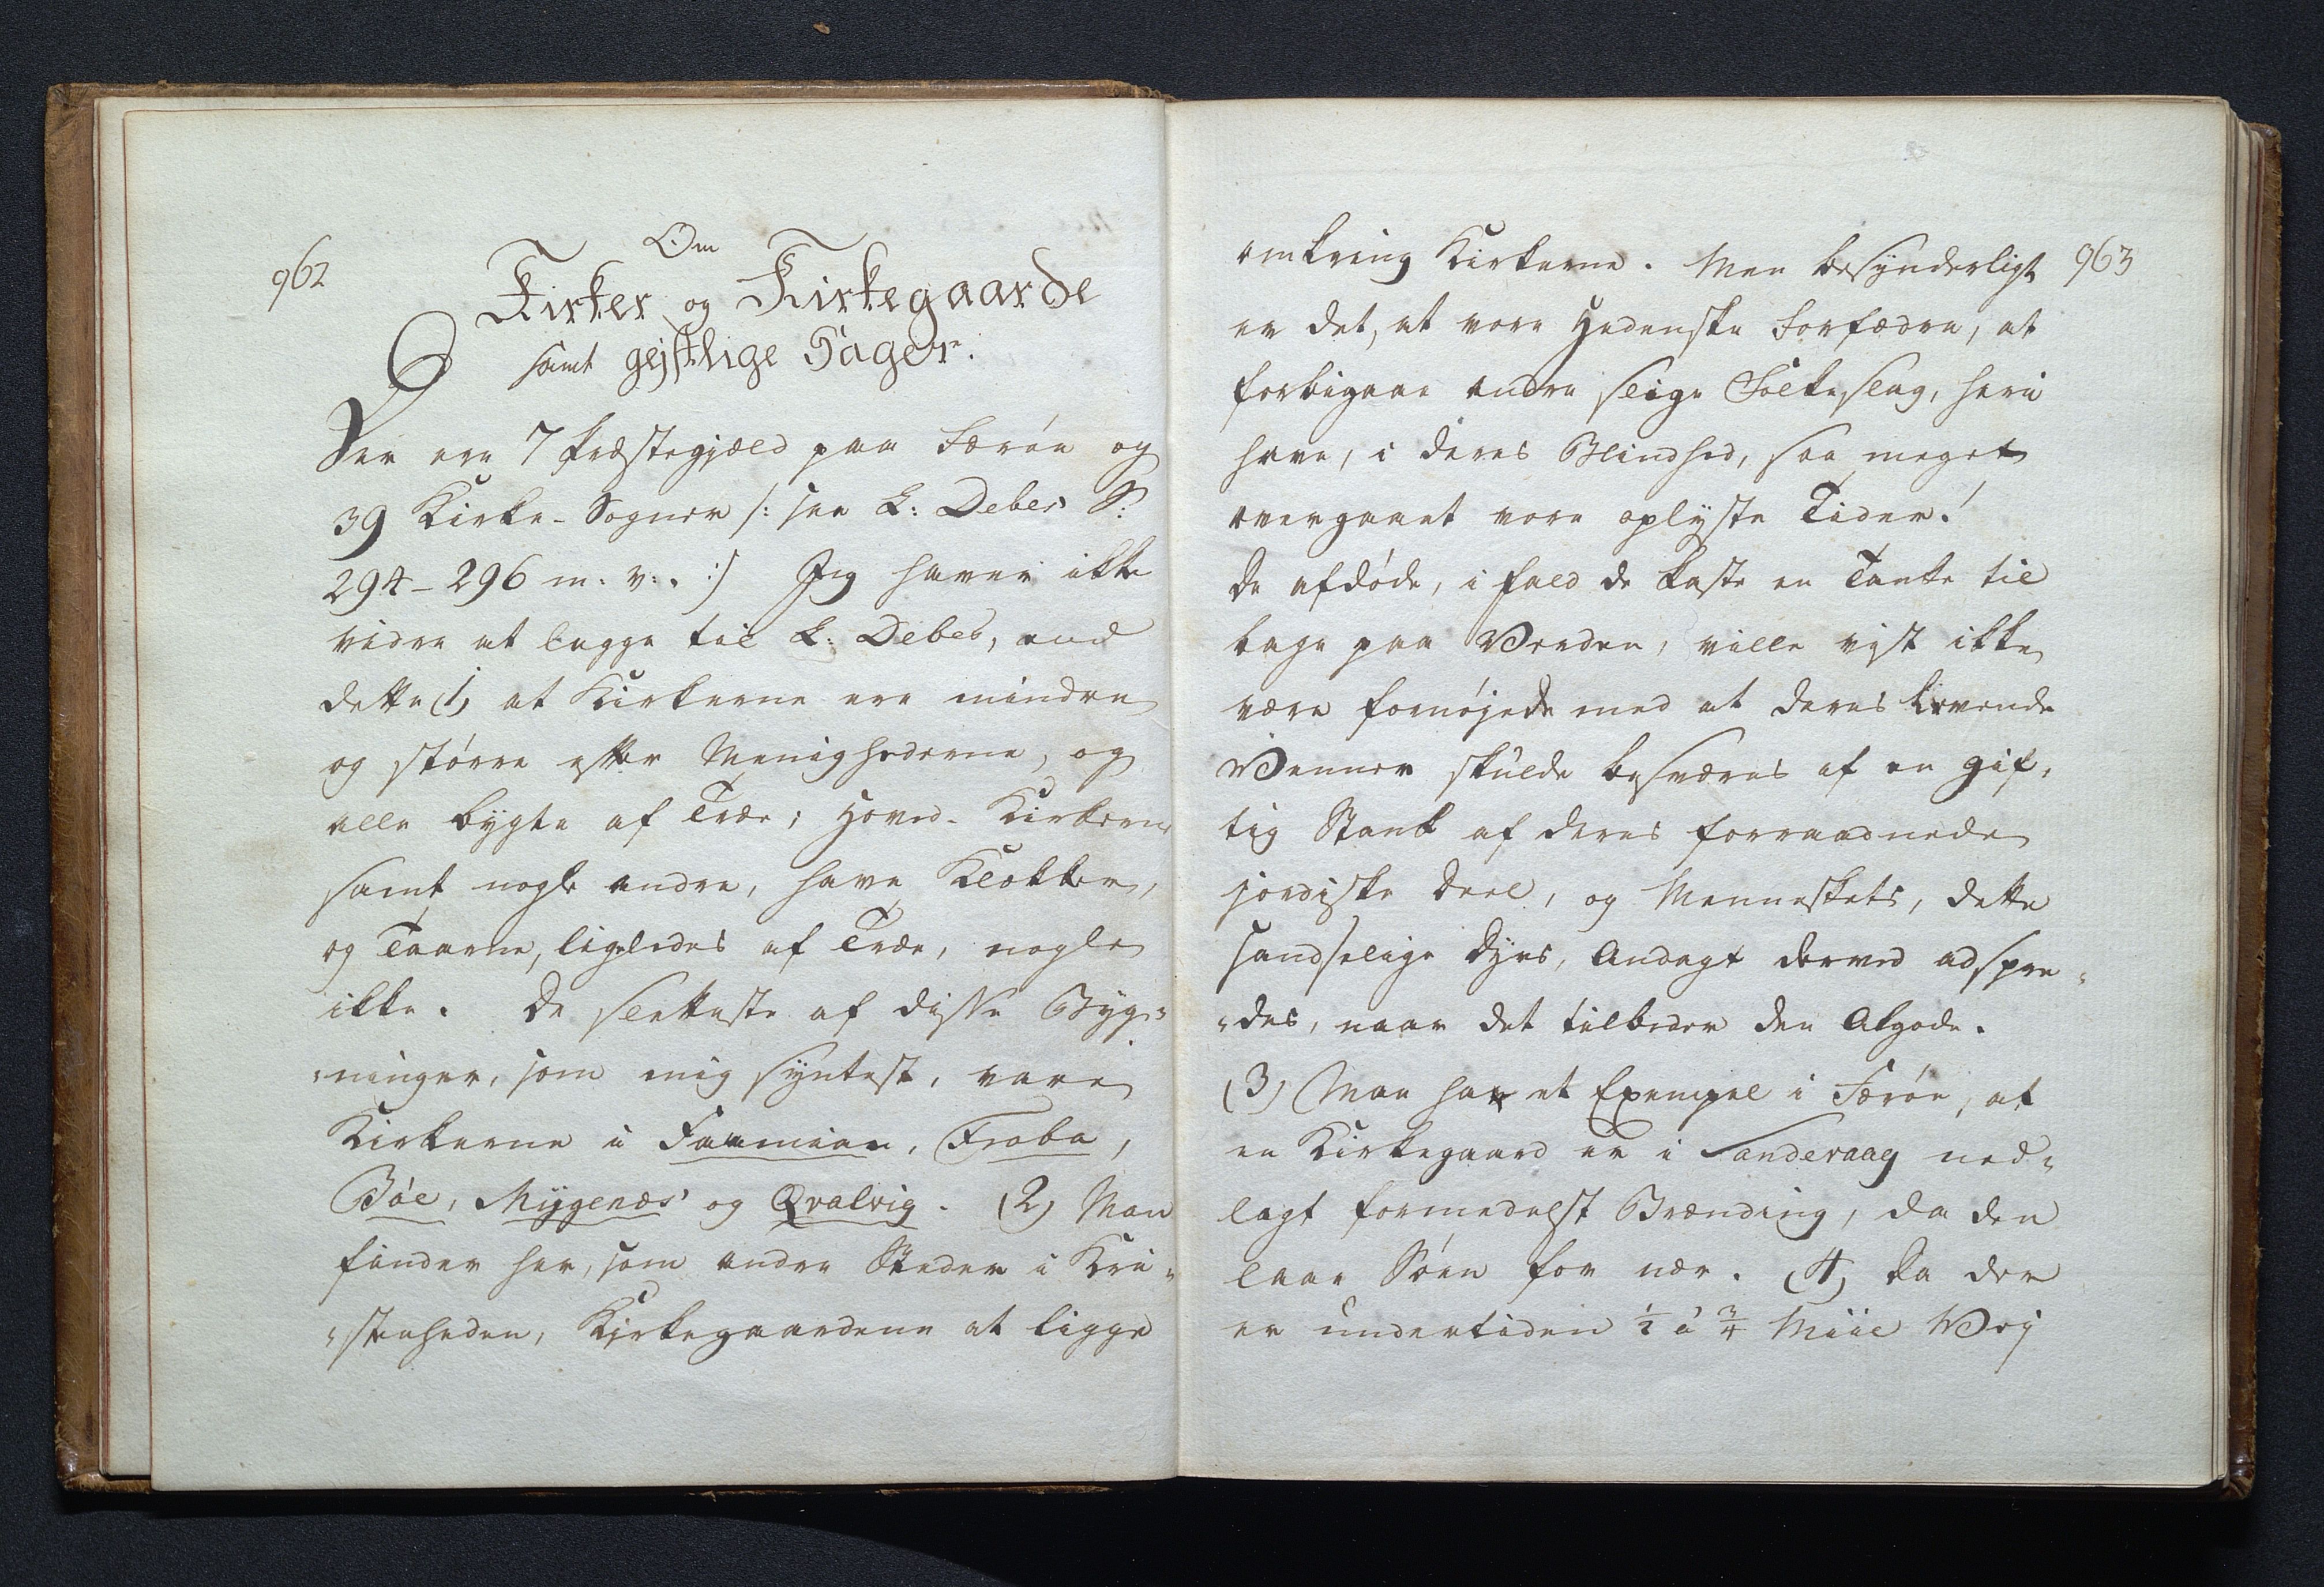 962
Om
Kirker og Kirkegaarde
samt gejstlige Sager.
Der ere 7 Præstegjæld paa Færöe og
39 Kirke-Sogner /: see L: Debes S:
294-296 m: v: . :/ Jeg haver ikke
videre at lægge til L: Debes, end
dette (1) at Kirkerne ere mindre
og större efter Menighederne, og
alle bÿgte af Træe; Hoved-Kirkerne
samt nogle andre, have Klokker,
og Taarne, ligeledes af Træe, nogle
ikke. De sletteste af disse Bÿg-
-ninger, som mig sÿntest, vare
Kirkerne i Faamien, Froba,
Böe, Mÿgenæs og Qvalvig. (2) Man
finder her, som andre Steder i Kri-
-stenheden, Kirkegaardene at ligge
omkring Kirkerne. Men besÿnderligt 963
er det, at vore Hedenske Forfædre, at
forbigaae andre slige Folkeslag, heri
have, i deres Blindhed, saa meget
overgaaet vore oplÿste Tider!
De afdöde, i fald de kaste en Tanke til
bage paa Verden, ville vist ikke
være fornöjede med at deres levende
Venner skulde besværes af en gif-
tig Stank af deres forraadnede
jordiske Deel, og Menneskets, dette
sandselige Dÿrs, Andagt derved adspre-
-des, naar det tilbeder den Algode.
(3) Man har et Exempel i Færöe, at
en Kirkegaard er i Sandevaag ned-
lagt formedelst Brænding, da den
laae Söen for nær. (4) Da der
er undertiden ½ á ¾ Miil Vej